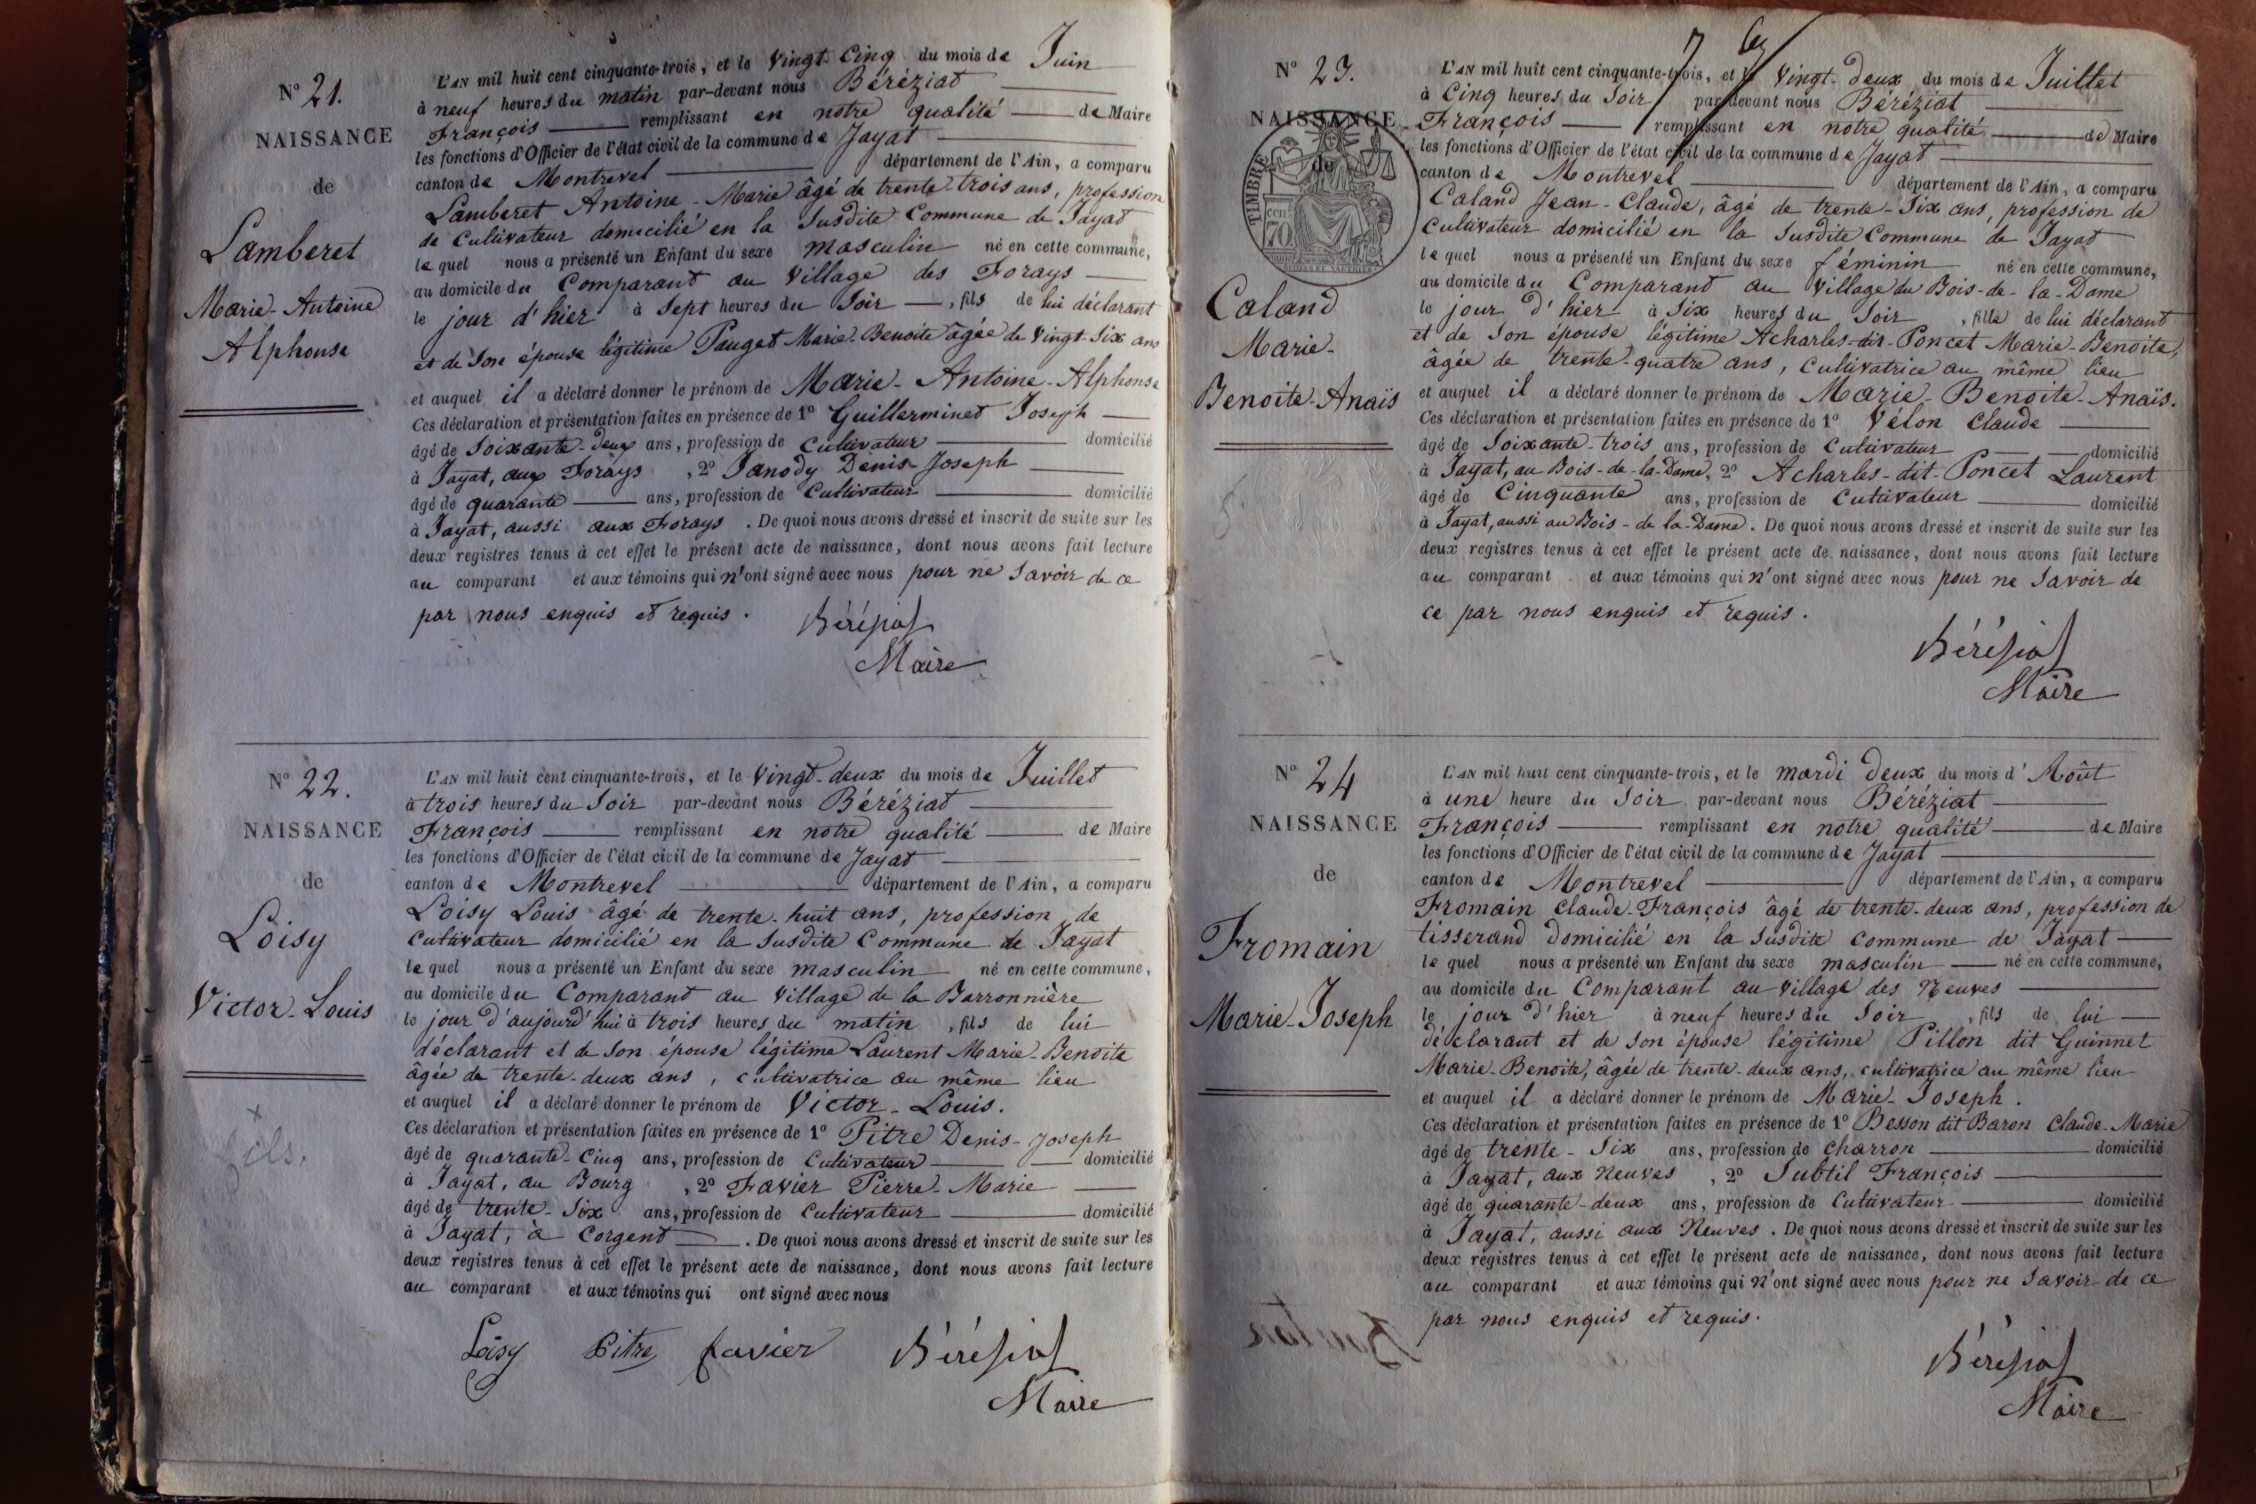 N° 21.
NAISSANCE
de
Lamberet
Marie-Antoine
Alphonse
L'AN mil huit cent cinquante-trois, et le Vingt-Cinq du mois de Juin
à neuf heures du matin par-devant nous Béréziat
François remplissant en notre qualité de Maire
les fonctions d'Officier de l'état civil de la commune de Jayat
canton de Montrevel département de l'Ain, a comparu
Lamberet Antoine-Marie âgé de trente-trois ans, profession
de Cultivateur domicilié en la Susdite Commune de Jayat
lequel nous a présenté un Enfant du sexe masculin né en cette commune,
au domicile du Comparant au Village des Forays
le jour d'hier à Sept heures du Soir, fils de lui déclarant
et de Son épouse légitime Pauget Marie-Benoite âgée de Vingt-Six ans
et auquel il a déclaré donner le prénom de Marie-Antoine-Alphonse
Ces déclaration et présentation faites en présence de 1° Guillerminet Joseph
âgé de Soixante-deux ans, profession de Cultivateur domicilié
à Jayat, aux Forays, 2° Janody Denis-Joseph
âgé de quarante ans, profession de Cultivateur domicilié
à Jayat, aussi aux Forays. De quoi nous avons dressé et inscrit de suite sur les
deux registres tenus à cet effet le présent acte de naissance, dont nous avons fait lecture
au comparant et aux témoins qui n'ont signé avec nous pour ne Savoir de ce
par nous enquis et requis.
Béréziat
Maire
N° 22.
NAISSANCE
de
Loisy
Victor-Louis
fils.
L'AN mil huit cent cinquante-trois, et le Vingt-deux du mois de Juillet
à trois heures du Soir par-devant nous Béréziat
François remplissant en notre qualité de Maire
les fonctions d'Officier de l'état civil de la commune de Jayat
canton de Montrevel département de l'Ain, a comparu
Loisy Louis âgé de trente-huit ans, profession de
Cultivateur domicilié en la Susdite Commune de Jayat
lequel nous a présenté un Enfant du sexe masculin né en cette commune,
au domicile du Comparant au Village de la Barronnière
le jour d'aujourd'hui à trois heures du matin, fils de lui
déclarant et de Son épouse légitime Laurent Marie-Benoite
âgée de trente-deux ans, cultivatrice au même lieu
et auquel il a déclaré donner le prénom de Victor-Louis.
Ces déclaration et présentation faites en présence de 1° Pitre Denis-Joseph
âgé de quarante-Cinq ans, profession de Cultivateur domicilié
à Jayat, au Bourg, 2° Favier Pierre-Marie
âgé de trente-Six ans, profession de Cultivateur domicilié
à Jayat, à Corgent. De quoi nous avons dressé et inscrit de suite sur les
deux registres tenus à cet effet le présent acte de naissance, dont nous avons fait lecture
au comparant et aux témoins qui ont signé avec nous
Loisy Pitre favier Béréziat
Maire
N° 23.
NAISSANCE
de
TIMBRE
70
Caland
Marie-
Benoite-Anaïs
L'AN mil huit cent cinquante-trois, et le Vingt-deux du mois de Juillet
à Cinq heures du Soir par-devant nous Béréziat
François remplissant en notre qualité de Maire
les fonctions d'Officier de l'état civil de la commune de Jayat
canton de Montrevel département de l'Ain, a comparu
Caland Jean-Claude, âgé de trente-Six ans, profession de
Cultivateur domicilié en la Susdite Commune de Jayat
lequel nous a présenté un Enfant du sexe féminin né en cette commune,
au domicile du Comparant au Village du Bois-de-la-Dame
le jour d'hier à Six heures du Soir, fille de lui déclarant
et de Son épouse légitime Acharles-dit-Poncet Marie-Benoite,
âgée de trente-quatre ans, Cultivatrice au même lieu
et auquel il a déclaré donner le prénom de Marie-Benoite-Anaïs.
Ces déclaration et présentation faites en présence de 1° Vélon Claude
âgé de Soixante-trois ans, profession de Cultivateur domicilié
à Jayat, au Bois-de-la-Dame, 2° Acharles-dit-Poncet Laurent
âgé de Cinquante ans, profession de Cultivateur domicilié
à Jayat, aussi au Bois-de-la-Dame. De quoi nous avons dressé et inscrit de suite sur les
deux registres tenus à cet effet le présent acte de naissance, dont nous avons fait lecture
au comparant et aux témoins qui n'ont signé avec nous pour ne Savoir de
ce par nous enquis et requis.
Béréziat
Maire
N° 24
NAISSANCE
de
Fromain
Marie-Joseph
L'AN mil huit cent cinquante-trois, et le mardi deux du mois d'Août
à une heure du Soir par-devant nous Béréziat
François remplissant en notre qualité de Maire
les fonctions d'Officier de l'état civil de la commune de Jayat
canton de Montrevel département de l'Ain, a comparu
Fromain Claude-François âgé de trente-deux ans, profession de
tisserand domicilié en la Susdite commune de Jayat
lequel nous a présenté un Enfant du sexe masculin né en cette commune,
au domicile du Comparant au Village des Neuves
le jour d'hier à neuf heures du Soir, fils de lui
déclarant et de Son épouse légitime Pillon dit Guinnet
Marie-Benoite, âgée de trente-deux ans, cultivatrice au même lieu
et auquel il a déclaré donner le prénom de Marie-Joseph.
Ces déclaration et présentation faites en présence de 1° Besson dit Baron Claude-Marie
âgé de trente-Six ans, profession de Charron domicilié
à Jayat, aux Neuves, 2° Subtil François
âgé de quarante-deux ans, profession de Cultivateur domicilié
à Jayat, aussi aux Neuves. De quoi nous avons dressé et inscrit de suite sur les
deux registres tenus à cet effet le présent acte de naissance, dont nous avons fait lecture
au comparant et aux témoins qui n'ont signé avec nous pour ne Savoir de ce
par nous enquis et requis.
Béréziat
Maire